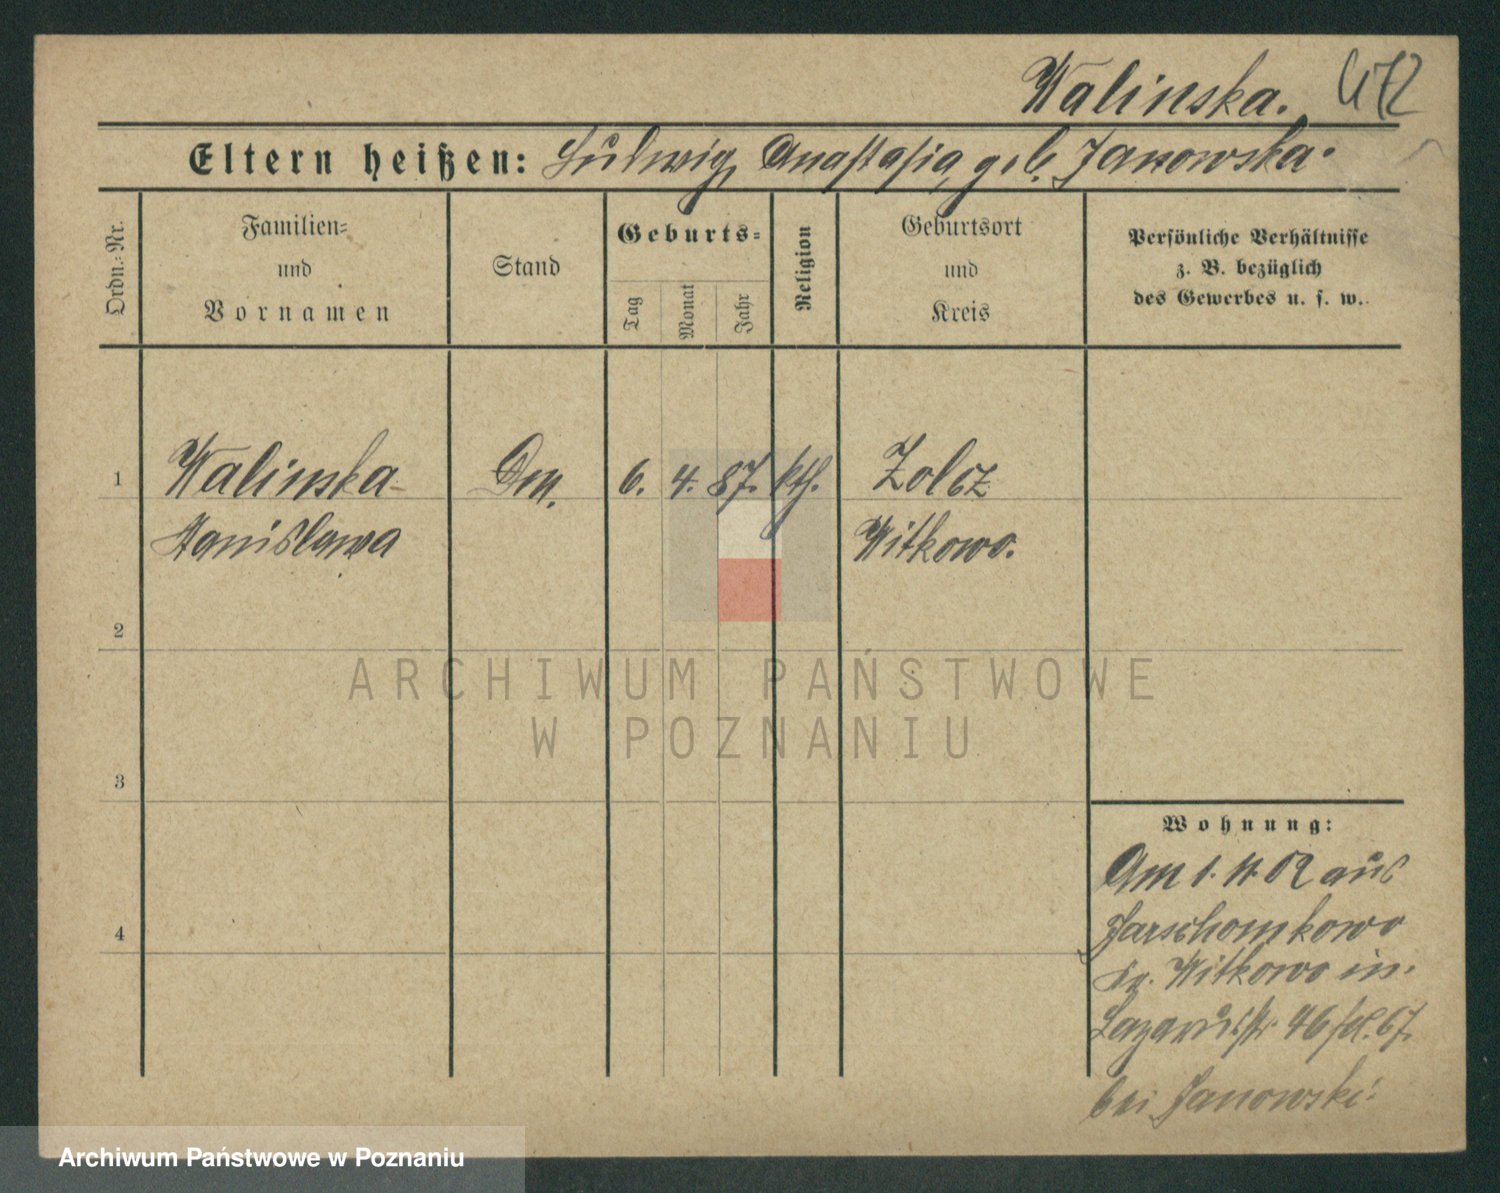 Walinska. 472
Eltern heißen: Ludwig, Anastasia, geb. Janowska.
Ordn.-Nr.
Familien-
und
Vornamen
Stand
Geburts-
Tag
Monat
Jahr
Religion
Geburtsort
und
Kreis
Persönliche Verhältnisse
z. B. bezüglich
des Gewerbes u. s. w.
1 Walinska Dm. 6. 4. 87. kth.
Stanislawa Witkowo.
2
ARCHIWUM PAŃSTWOWE
W POZNANIU
3
4
Wohnung:
Am 1. 11. 02 aus
Jarschomkowo
Kr. Witkowo in.
Lazarusstr. 46 67.
bei Janowski.
Archiwum Państwowe w Poznaniu